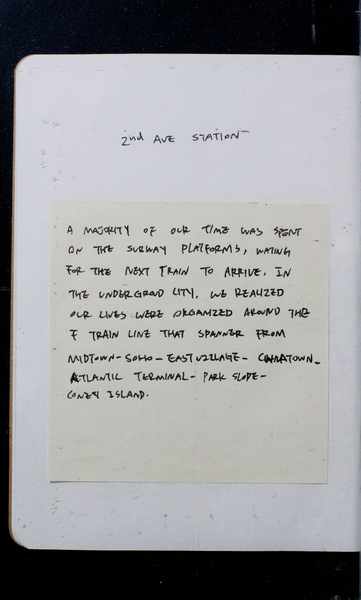 2nd AVE STATION
A MAJORITY OF OUR TIME WAS SPENT
ON THE SUBWAY PLATFORMS, WATING
FOR THE NEXT TRAIN TO ARRIVE. IN
THE UNDERGROD CITY, WE REALIZED
OUR LIVES WERE ORGANIZED AROUND THE
F TRAIN LINE THAT SPANNER FROM
MIDTOWN - SOHO - EAST VILLAGE - CHINATOWN -
ATLANTIC TERMINAL - PARK SLOPE -
CONEY ISLAND.